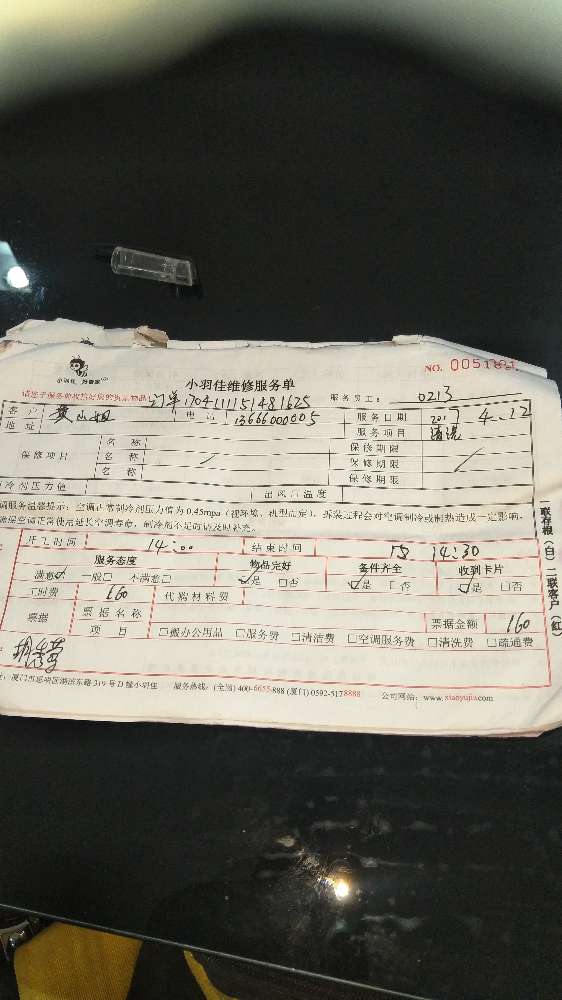 小羽佳 好管家
NO. 0051821
小羽佳维修服务单
订单170411151481625
服务员工: 0213
客户
电话 13666000005
服务日期 2017 4.12
地址
服务项目 清洗
保修项目
名 称
保修期限
名 称
保修期限
名 称
保修期限
制冷剂压力值
出风口温度
调服务温馨提示:空调正常制冷剂压力值为0.45mpa(视环境、机型而定),拆装过程会对空调制冷或制热造成一定影响,
确保空调正常使用延长空调寿命,制冷剂不足时请及时补充。
开工时间 14:00
结束时间 14:30
服务态度
物品完好
备件齐全
收到卡片
满意☑ 一般□ 不满意□
☑是 □否
☑是 □否
☑是 □否
工时费 160
代购材料费
票据
票据名称
票据金额 160
项 目
□搬办公用品 □服务费 □清洁费 □空调服务费 □清洗费 □疏通费
厦门市思明区湖滨东路319号D幢小羽佳
服务热线:(全国)400-6655-888 (厦门)0592-5178888
公司网站:www.xiaoyujia.com
联存根(白)二联客户(红)